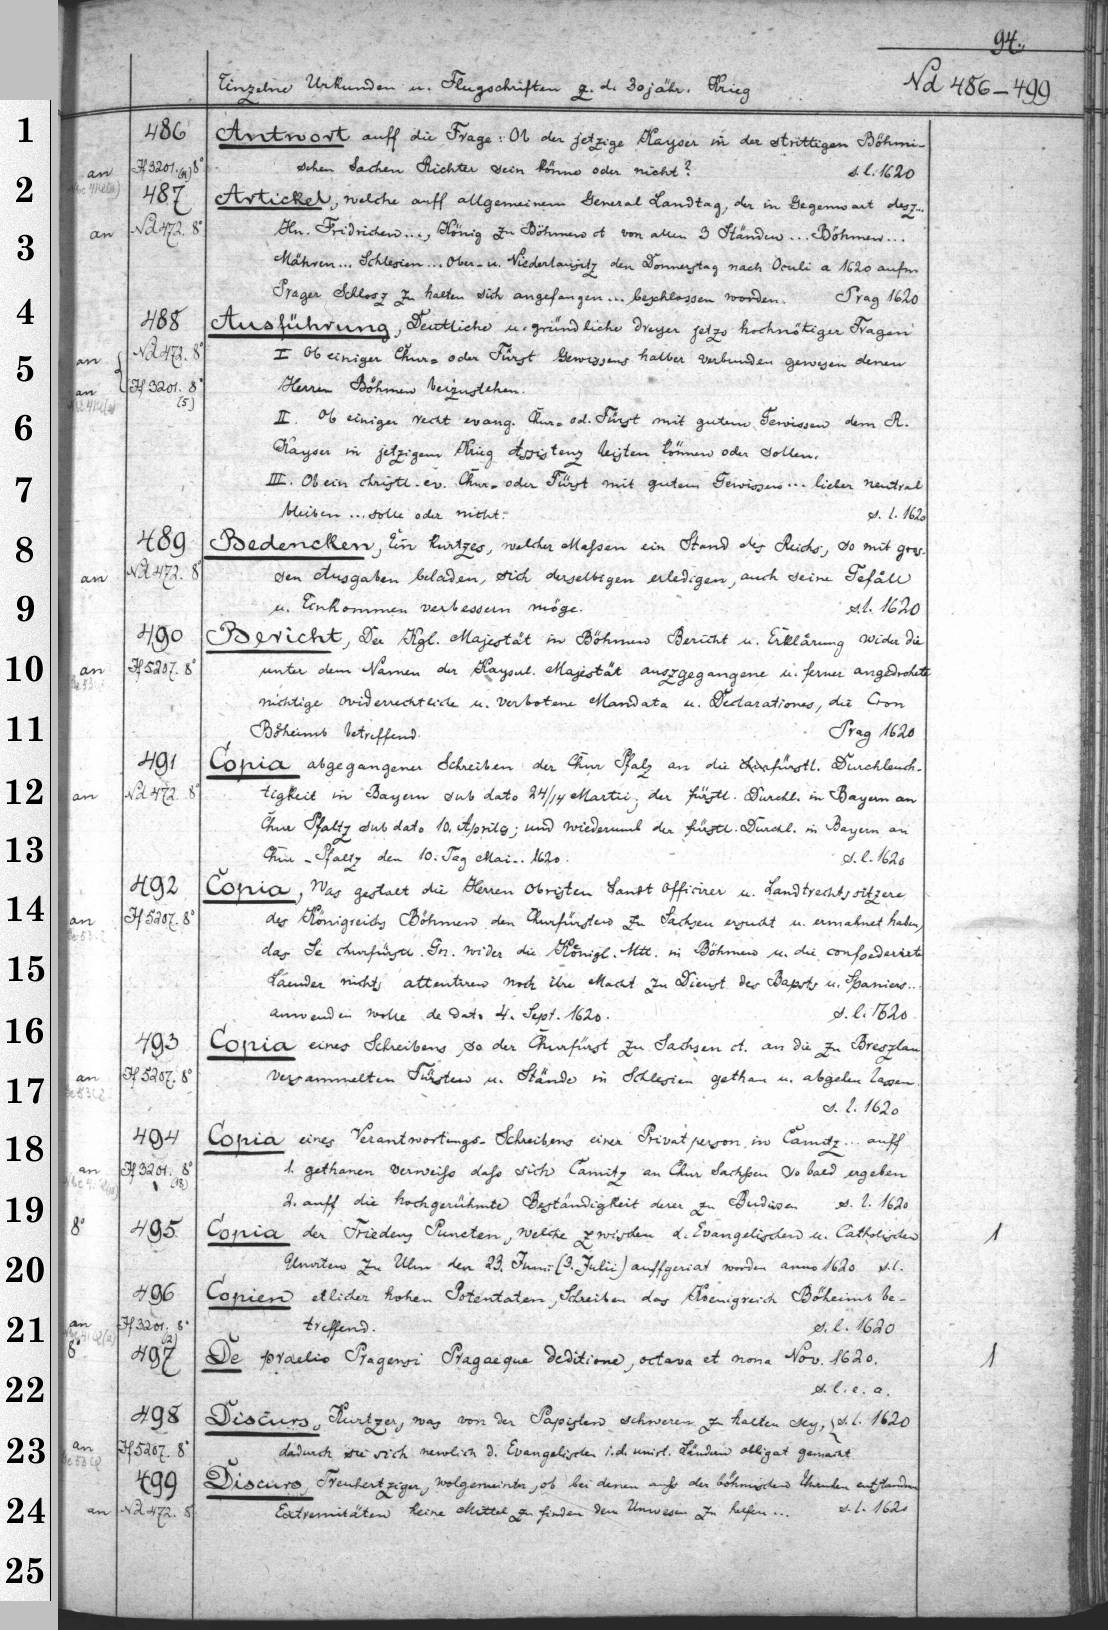 94.
Einzelne Urkunden u. Flugschriften z. d. 30 jähr. Krieg Nd 486-499
486 Antwort auff die Frage: Ob der jetzige Kayser in der strittigen Böhmi-
an Hf 3201. 8° schen Sachen Richter sein könne oder nicht? s. l. 1620
487 Artickel, welche auff allgemeinem General Landtag, der in Gegenwart desz...
an Nd 472. 8° Hn. Fridrichen..., König zu Böhmen et von allen 3 Ständen ... Böhmen...
Mähren... Schlesien... Ober- u. Niederlausitz den Donnerstag nach Oculi a 1620 aufm
Prager Schlosz zu halten sich angefangen... beschlossen worden. Prag 1620
488 Ausführung, Deutliche u. gründliche dreyer jetzo hochnötiger Fragen
an Nd 472. 8° I Ob einiger Chur- oder Fürst Gewissens halber verbunden gewesen denen
an Hf 3201. 8° (5) Herren Böhmen beizustehen.
II. Ob einiger recht evang. Chur- od. Fürst mit gutem Gewissen dem R.
Kayser in jetzigem Krieg Assistenz leisten können oder sollen.
III. Ob ein christl. ev. Chur- oder Fürst mit gutem Gewissen... lieber neutral
bleiben ... solle oder nicht. s. l. 1620
489 Bedencken, Ein kurtzes, welcher Massen ein Stand des Reichs, so mit gros-
an Nd 472. 8° sen Ausgaben beladen, sich derselbigen erledigen, auch seine Gefäll
u. Einkommen verbessern möge. s. l. 1620
490 Bericht, Der Kgl. Majestät in Böhmen Bericht u. Erklärung wider die
an Hf 5207. 8° unter dem Namen der Kaysel. Majestät auszgegangene u. ferner angedrohete
nichtige widerrechtliche u. verbotene Mandata u. Declarationes, die Cron
Böheimb betreffend. Prag 1620
491 Copia abgegangener Schreiben der Chur Pfalz an die churfürstl. Durchleuch-
an Nd 472. 8° tigkeit in Bayern sub dato 24/14 Martii; der fürstl. Durchl. in Bayern an
Chur Pfaltz sub dato 10. Aprilis; und wiederumb der fürstl. Durchl. in Bayern an
Chur-Pfaltz den 10. Tag Mai... 1620. s. l. 1620
492 Copia, Was gestalt die Herren Obristen Landt Officirer u. Landtrechtssitzere
an Hf 5207. 8° des Königreichs Böhmen den Churfürsten zu Sachsen ersucht u. ermahnet haben,
das Se churfürstl. Gn. wider die Königl. Mtt. in Böhmen u. die confoederirte
Laender nichts attentiren noch ihre Macht zu Dienst des Bapsts u. Spaniers...
anwenden wolle de dato 4. Sept. 1620. s. l. 1620
493 Copia eines Schreibens, so der Churfürst zu Sachsen et. an die zu Breszlau
an Hf 5207. 8° versammelten Fürsten u. Stände in Schlesien gethan u. abgehen lassen.
s. l. 1620
494 Copia eines Verantwortungs-Schreibens einer Privatperson in Camitz... auff
an Hf 3201. 8° 1. gethanen verweiss dass sich Camitz an Chur Sachssen so bald ergeben
2. auff die hochgerühmte Beständigkeit derer zu Budissen s. l. 1620
8° 495 Copia der Friedens Puncten, welche zwischen d. Evangelischen u. Catholischen 1
Unirten zu Ulm den 23. Juni (3. Julii) auffgericht worden anno 1620 s. l.
496 Copien etlicher hohen Potentaten, Schreiben das Koenigreich Böheimb be-
an Hf 3201. 8° (2) treffend. s. l. 1620
8° 497 De praelio Pragensi Pragaeque deditione, octava et nona Nov. 1620. 1
s. l. e. a.
498 Discurs, Kurtzer, was von der Papisten schweren zu halten sey, s. l. 1620
an Hf 5207. 8° dadurch sie sich newlich d. Evangelischen i. d. unirt. Ländern obligat gemacht
499 Discurs, Treuhertziger, wolgemeinter, ob bei denen auss der böhmischen Unruhen entstanden
an Nd 472. 8° Extremitäten keine Mittel zu finden dem Unwesen zu helfen... s. l. 1620
1
2
3
4
5
6
7
8
9
10
11
12
13
14
15
16
17
18
19
20
21
22
23
24
25